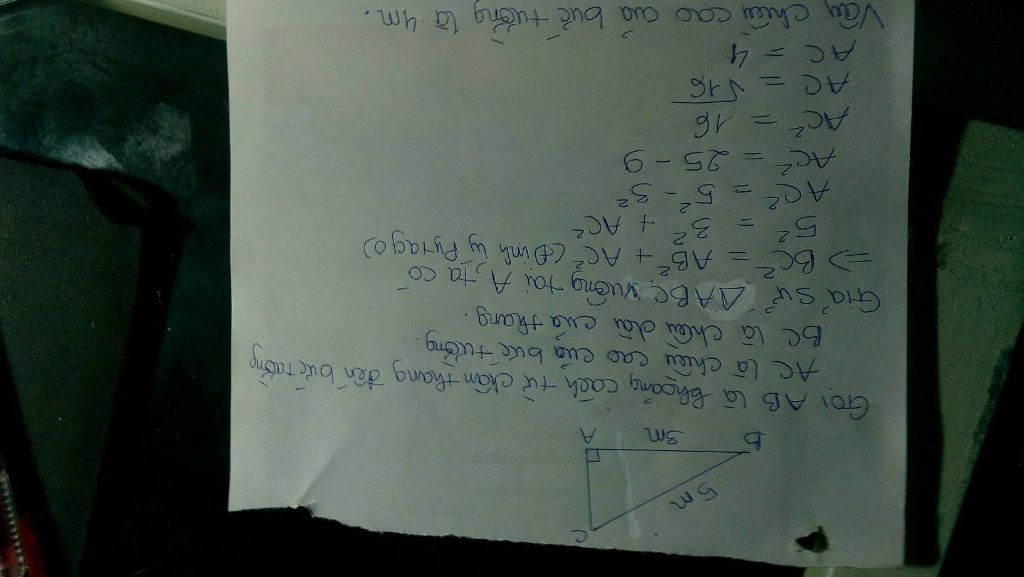 C
5m
B 3m A
Gọi AB là khoảng cách từ chân thang đến bức tường
AC là chiều cao của bức tường.
BC là chiều dài của thang.
Giả sử △ABC vuông tại A, ta có
=> BC² = AB² + AC² (Định lý Pytago)
5² = 3² + AC²
AC² = 5² - 3²
AC² = 25 - 9
AC² = 16
AC = √16
AC = 4
Vậy chiều cao của bức tường là 4m.